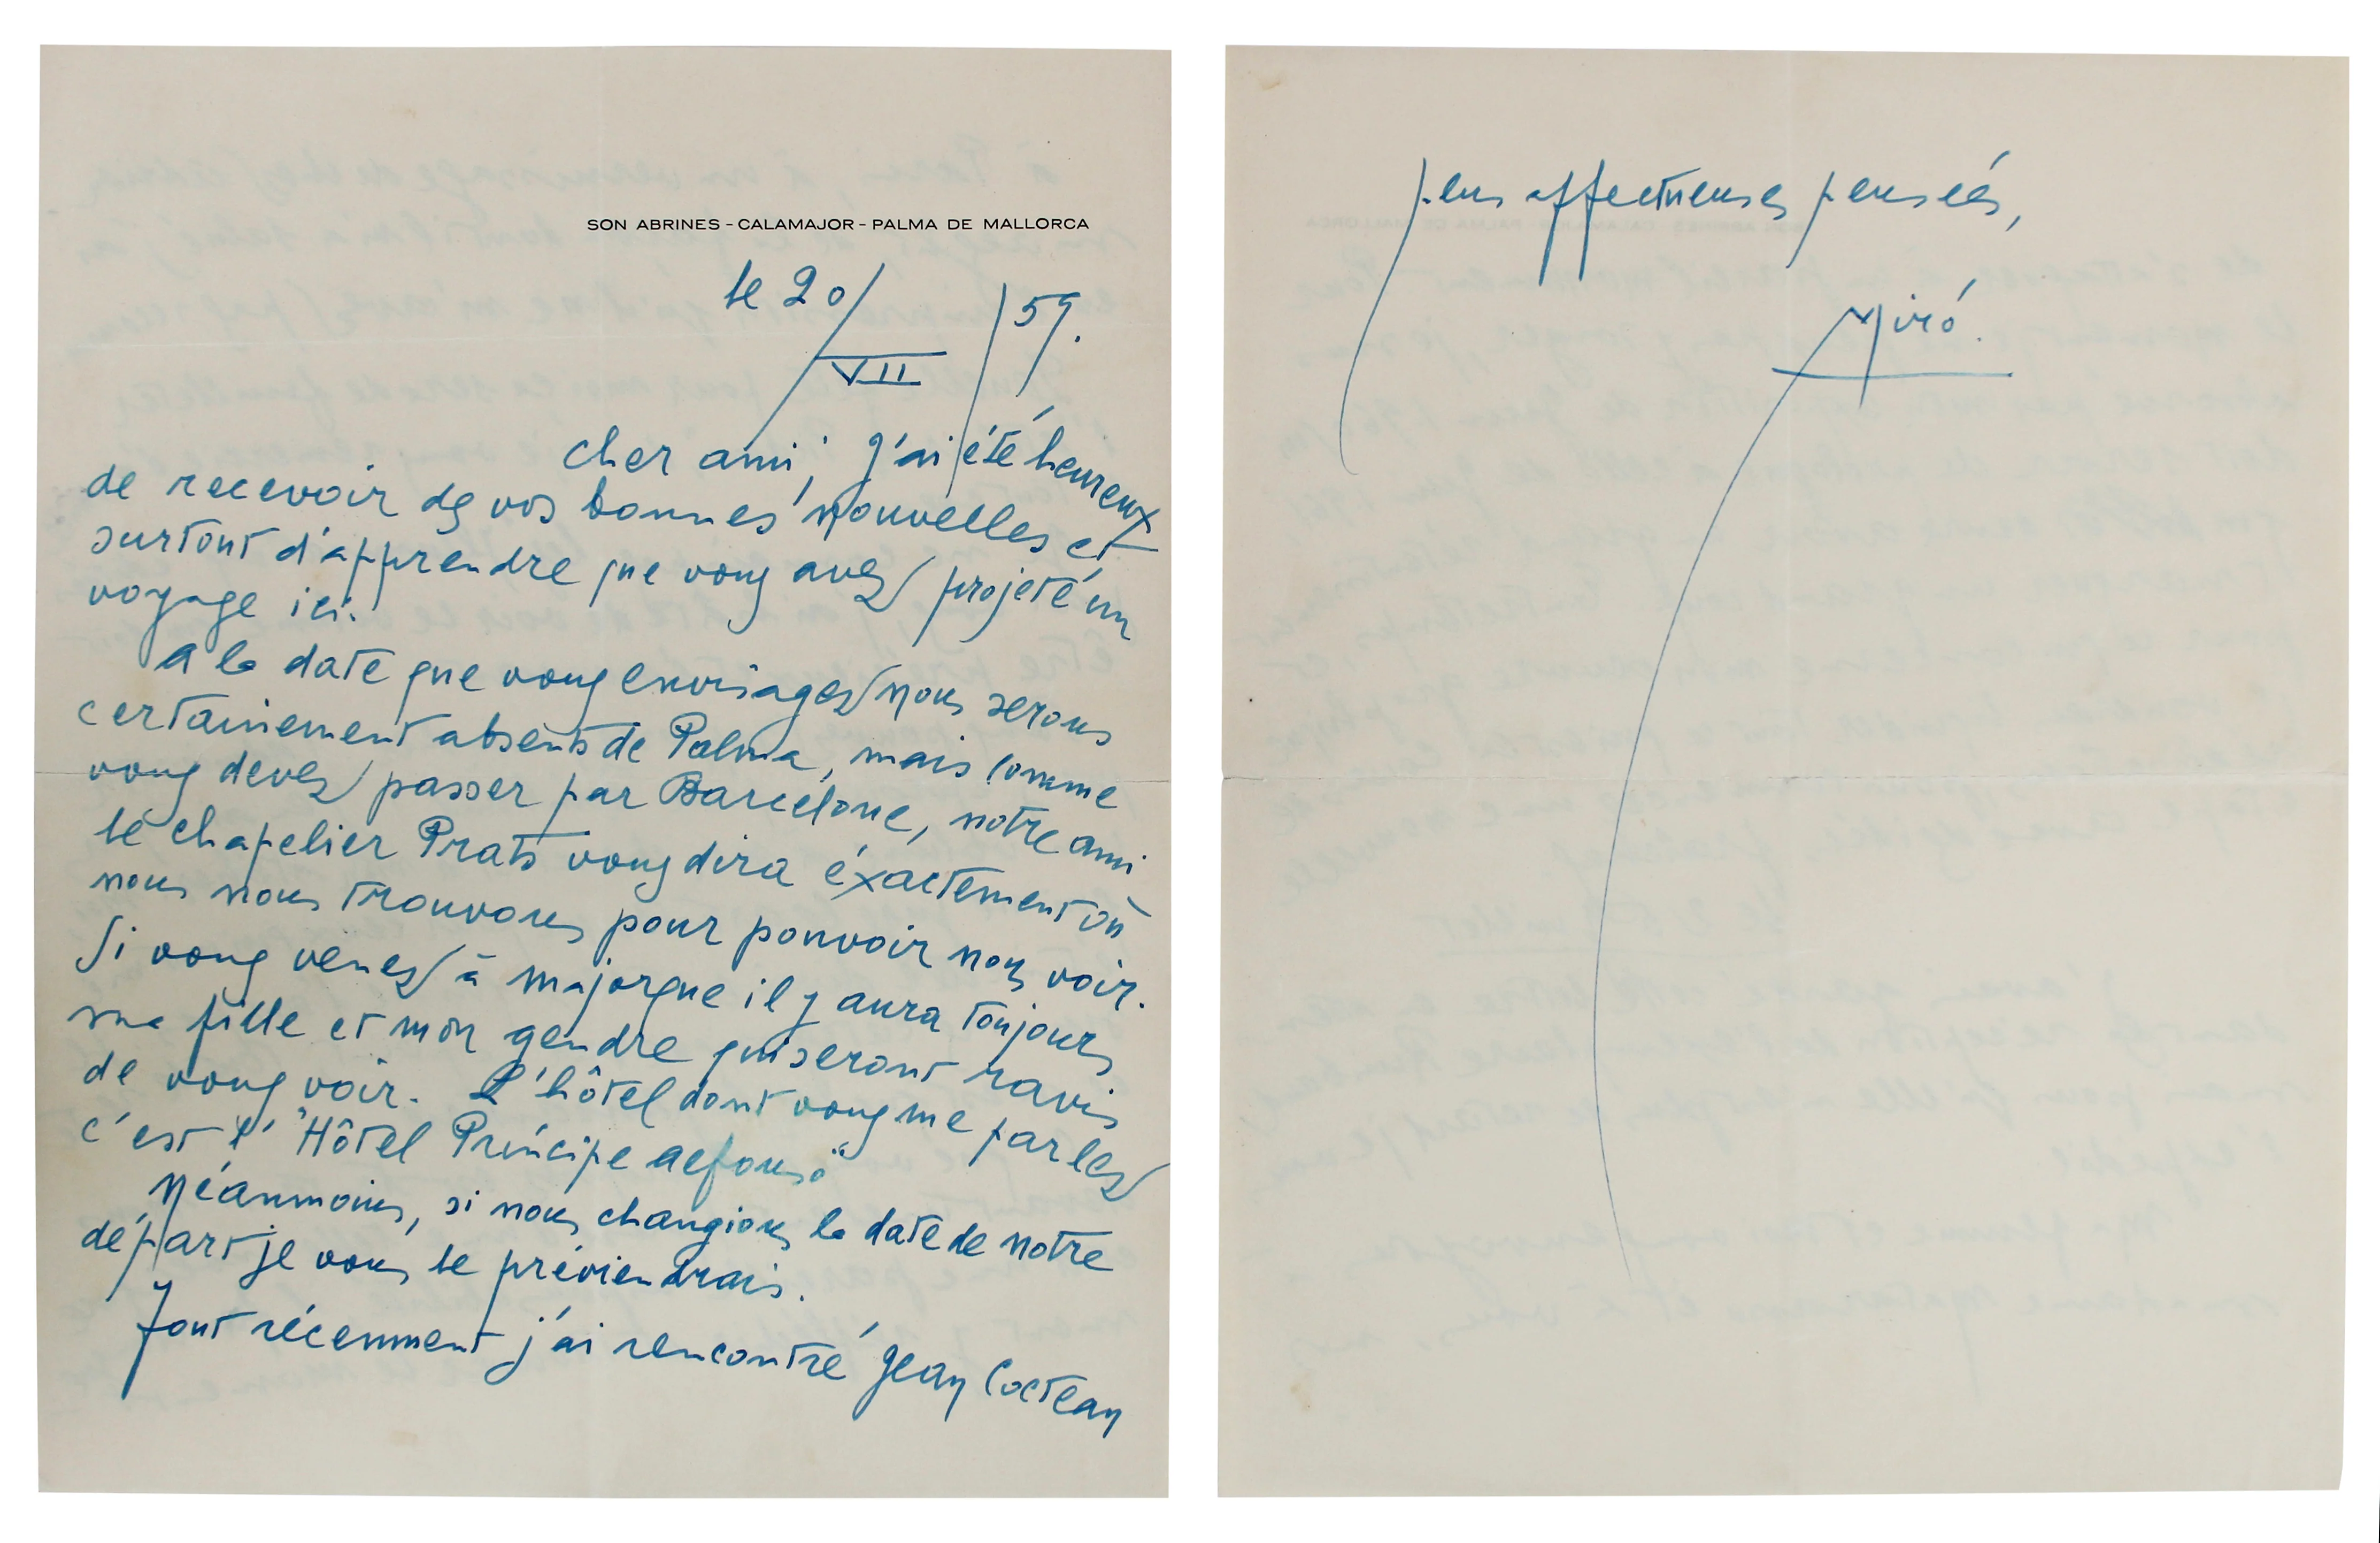 SON ABRINES - CALAMAJOR - PALMA DE MALLORCA
le 20/VII/59.
cher ami, j'ai été heureux
de recevoir de vos bonnes nouvelles et
surtout d'apprendre que vous avez projeté un
voyage ici.
A la date que vous envisagez nous serons
certainement absents de Palma, mais comme
vous devez passer par Barcelone, notre ami
le chapelier Prats vous dira éxactement où
nous nous trouvons pour pouvoir nous voir.
Si vous venez à Majorque il y aura toujours
ma fille et mon gendre qui seront ravis
de vous voir. L'hôtel dont vous me parlez
c'est l' "Hôtel Príncipe Alfonso"
Néanmoins, si nous changions la date de notre
départ je vous le préviendrais.
Tout récemment j'ai rencontré Jean Cocteau
plus affectueuses pensées,
Miró.